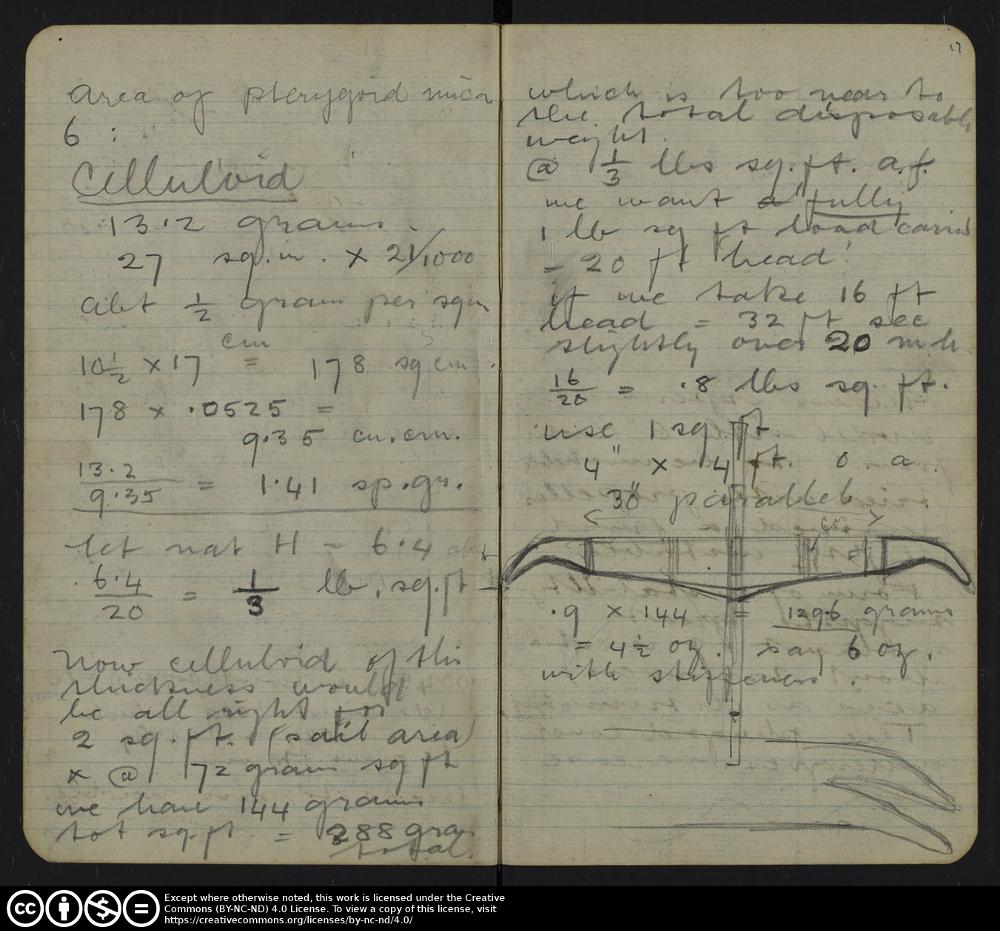 area of pterygoid
6 :
Celluloid
13.2 grams.
27 sq.in. × 21/1000
abt 1/2 gram per sqin
cm
10 1/2 × 17 = 178 sq cm
178 × .0525 =
9.35 cu.cm.
13.2/9.35 = 1.41 sp.gr.
let nat H = 6.4
6.4/20 = 1/3 lb. sq.ft
Now celluloid of this
thickness would
be all right for
2 sq.ft. (sail area)
× @ 72 grams sq ft
we have 144 grams
tot sq.ft = 288 gra
total.
17
which is too near to
the total disposable
weight.
@ 1/3 lbs sq.ft. a.f.
we want a fully
1 lb sq ft load carried
= 20 ft head!
if we take 16 ft
head = 32 ft sec
slightly over 20 m.h.
16/20 = .8 lbs sq. ft.
use 1 sq ft
4" × 4 ft. o. a.
30" parallel
.9 × 144 = 129.6 grams
= 4 1/2 oz. say 6 oz.
with stiffeners.
Except where otherwise noted, this work is licensed under the Creative
Commons (BY-NC-ND) 4.0 License. To view a copy of this license, visit
https://creativecommons.org/licenses/by-nc-nd/4.0/